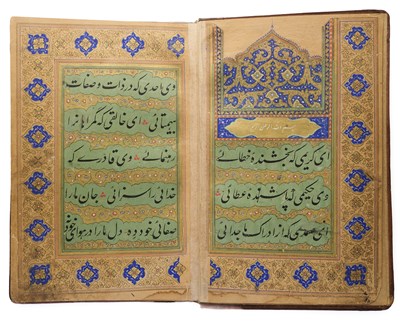 بسم الله الرحمن الرحیم
ای کریمی که بخشنده خطائی
وی حکیمی که پوشنده عطائی
وی صمدی که از ادراک ما جدائی
وی احدی که در ذات و صفات
بیهمتائی ای خالقی که گمراهانرا
رهنمائی وی قادری که
خدائی را سزائی جان ما را
صفائی خود ده دل ما را هوای خود